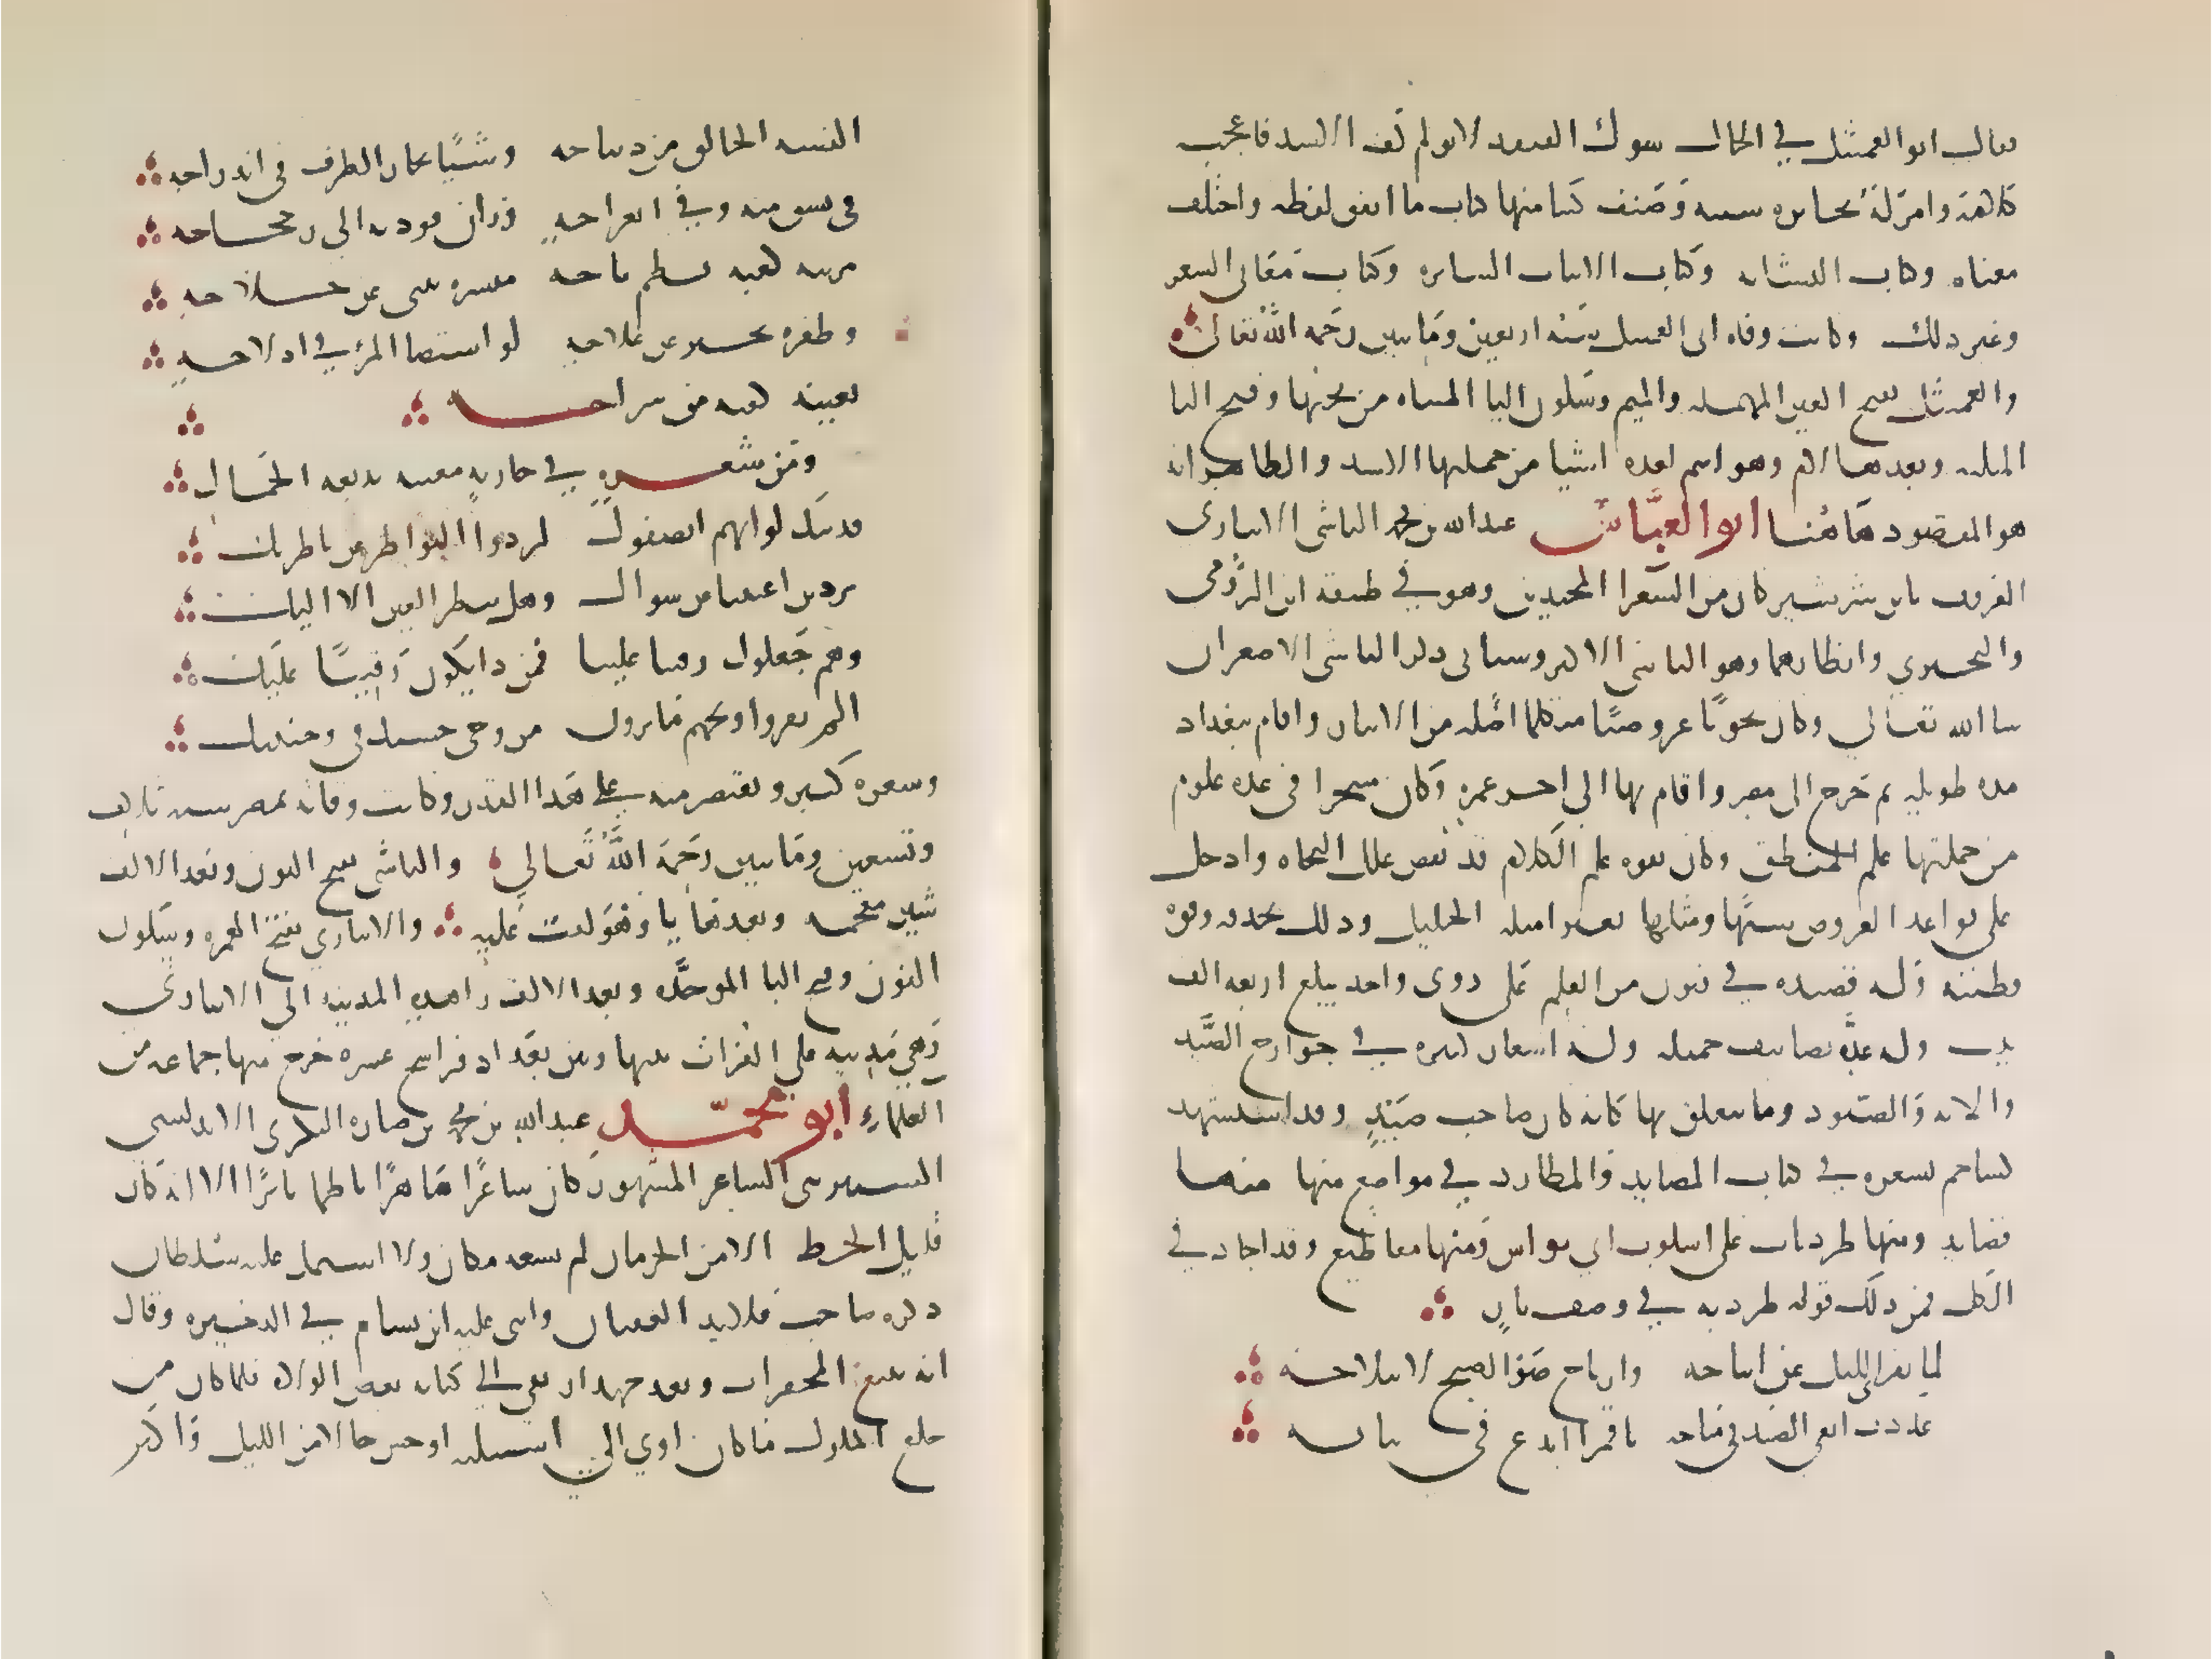 فقال ابو العميثل في الحال شوك القنفد لا يولم كف الاسد فاعجب
كلامه وامر له بجايزه سنيه وصنف كتبا منها كتاب ما اتفق لفظه واختلف
معناه وكتاب التشابه وكتاب الابيات السايره وكتاب معاني الشعر
وغير ذلك وكانت وفاه ابي العميثل سنه اربعين وماتين رحمه الله تعالى
والعميثل بفتح العين المهمله والميم وسكون اليا المثناه من تحتها وفتح الثا
المثلثه وبعدها لام وهو اسم لعده اشيا من جملتها الاسد والظاهر انه
هو المقصود هاهنا ابو العباس عبد الله بن محمد الناشي الانباري
المعروف بابن شرشير كان من الشعرا المجيدين وهو في طبقه ابن الرومي
والبحتري وانظارهما وهو الناشي الاكبر وسياتي ذكر الناشي الاصغر ان
شا الله تعالي وكان نحويا عروضيا متكلما اصله من الانبار واقام ببغداد
مده طويله ثم خرج الى مصر واقام بها الي اخر عمره وكان متبحرا في عده علوم
من جملتها علم المنطق وكان بقوه علم الكلام قد نقض علل النحاه وادخل
على قواعد العروض شبها ومثلها بغير امثله الخليل وذلك بحذقه وقوه
فطنته وله قصيده في فنون من العلم على روي واحد يبلغ اربعه الف
بيت وله عده تصانيف جميله وله اشعار كثيره في جوارح الصيد
والاته والصيود وما يتعلق بها كانه كان صاحب صيد وقد استشهد
كشاجم بشعره في كتاب المصايد والمطارد في مواضع منها منها
قصايد ومنها طرديات على اسلوب ابي نواس ومنها مقاطيع وقد اجاد في
الكل فمن ذلك قوله طرديه في وصف باز
لما تفرى الليل عن اثباجه وارتاح ضوا الصبح لانبلاجه
غدوت ابغي الصيد في منهاجه باقمرا ابدع في نتاجه
البسه الخالق من ديباجه وشيا يحار الطرف في اندراجه
في نسق منه وفي انعراجه وزان فوديه الي حجاجه
بزينه كفته نظم تاجه منسره يبنى عن خلاجه
وظفره يخبر عن علاجه لو استضا المرء في ادلاجه
بعينه كفته من سراجه
ومن شعره في جاريه مغنيه بديعه الجمال
فديتك لو انهم انصفوك لردوا النواظر عن ناظريك
تردين اعيننا عن سواك وهل تنظر العين الا اليك
وهم جعلوك رقيبا علينا فمن ذا يكون رقيبا عليك
الم يقروا ويحهم ما يرون من وحي حسنك في وجنتيك
وشعره كثير ونقتصر منه على هذا القدر وكانت وفاته بمصر سنه ثلاث
وتسعين وماتين رحمه الله تعالي والناشي بفتح النون وبعد الالف
شين معجمه وبعدها يا وهو لقب غلب عليه والانباري بفتح الهمزه وسكون
النون وفتح البا الموحده وبعد الالف را هذه المدينه الي الانباري
وهي مدينه على الفرات بينها وبين بغداد فراسخ عشره خرج منها جماعه من
العلماء ابو محمد عبد الله بن محمد بن صاره البكري الاندلسي
الشنتريني الشاعر المشهور كان شاعرا ماهرا ناظما ناثرا الا انه كان
قليل الحظ الا من الحرمان لم يسعه مكان ولا اشتمل عليه سلطان
ذكره صاحب قلايد العقيان واثني عليه ابن بسام في الذخيره وقال
انه تتبع المحقرات وبعد جهد ارتقي الي كتابه بعض الولاه فلما كان من
خلع الملوك ما كان اوي الي اشبيليه اوحش حالا من الليل واكثر